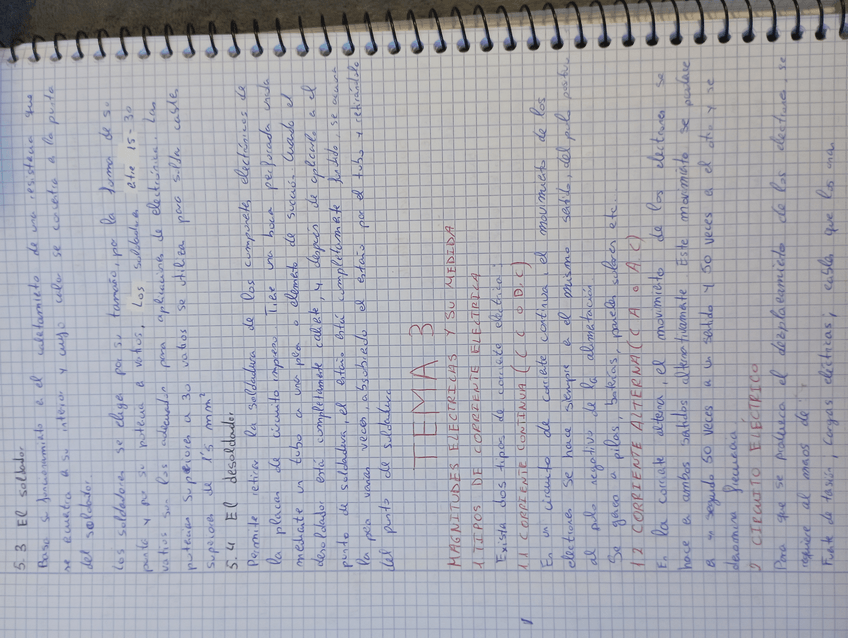 5.3 El soldador
Basa su funcionamiento en el calentamiento de una resistencia que
se encuentra en su interior y cuyo calor se concentra en la punta
del soldador.
Los soldadores se eligen por su tamaño, por la forma de su
punta y por su potencia en vatios. Los soldadores entre 15-30
vatios son los adecuados para aplicaciones de electrónica. Las
potencias superiores a 30 vatios se utilizan para soldar cables
superiores de 1'5 mm²
5.4 El desoldador
Permite retirar la soldadura de los componentes electrónicos de
la placa de circuito impreso. Tiene una boca perforada unida
mediante un tubo a una pera o elemento de succión. Cuando el
desoldador está completamente caliente, y después de aplicarlo en el
punto de soldadura, el estaño está completamente fundido, se acciona
la pera varias veces, absorbiendo el estaño por el tubo y retirándolo
del punto de soldadura.
TEMA 3
MAGNITUDES ELECTRICAS Y SU MEDIDA
1 TIPOS DE CORRIENTE ELECTRICA
Existen dos tipos de corriente eléctrica:
1.1 CORRIENTE CONTINUA (C C O D.C)
En un circuito de corriente continua, el movimiento de los
electrones se hace siempre en el mismo sentido, del polo positivo
al polo negativo de la alimentación
Se genera en pilas, baterías, paneles solares etc...
1.2 CORRIENTE ALTERNA (C A o A.C)
En la corriente alterna, el movimiento de los electrones se
hace en ambos sentidos alternativamente. Este movimiento se produce
en un segundo 50 veces en un sentido y 50 veces en el otro y se
denomina frecuencia.
2 CIRCUITO ELECTRICO
Para que se produzca el desplazamiento de los electrones se
requiere al menos de:
Fuente de tensión, cargas eléctricas, cables que los unan